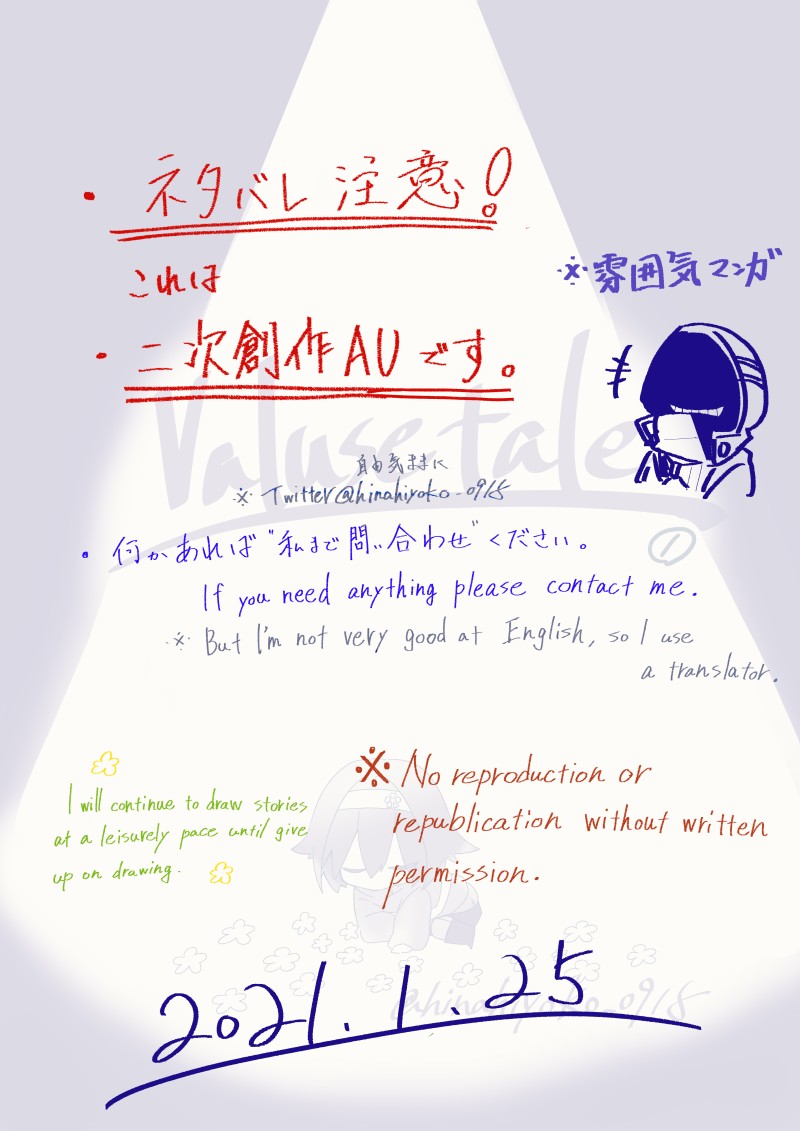 ・ネタバレ注意！
これは
※雰囲気マンガ
・二次創作AUです。
Valusetale
自由気ままに
※Twitter@hinahiyoko_0915
①
・何かあれば"私まで問い合わせ"ください。
If you need anything please contact me.
※ But I'm not very good at English, so I use
a translator.
I will continue to draw stories
at a leisurely pace until give
up on drawing.
※ No reproduction or
republication without written
permission.
@hinahiyoko_0915
2021.1.25